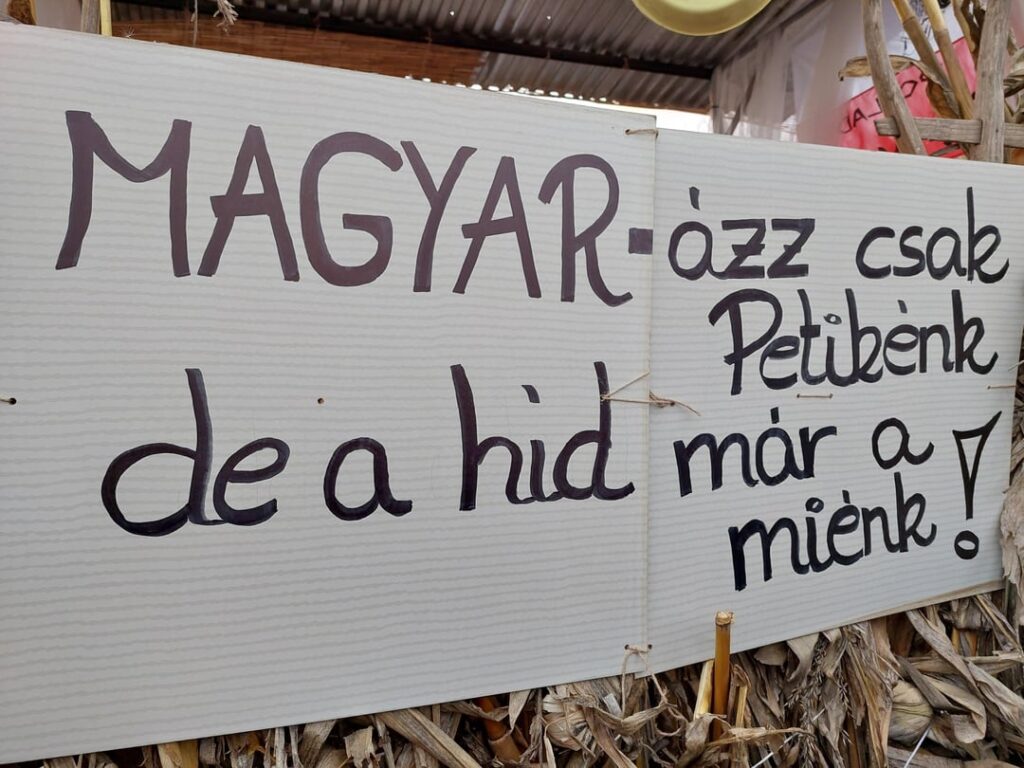 MAGYAR-ázz csak
Petikénk
de a hid már a
miénk!